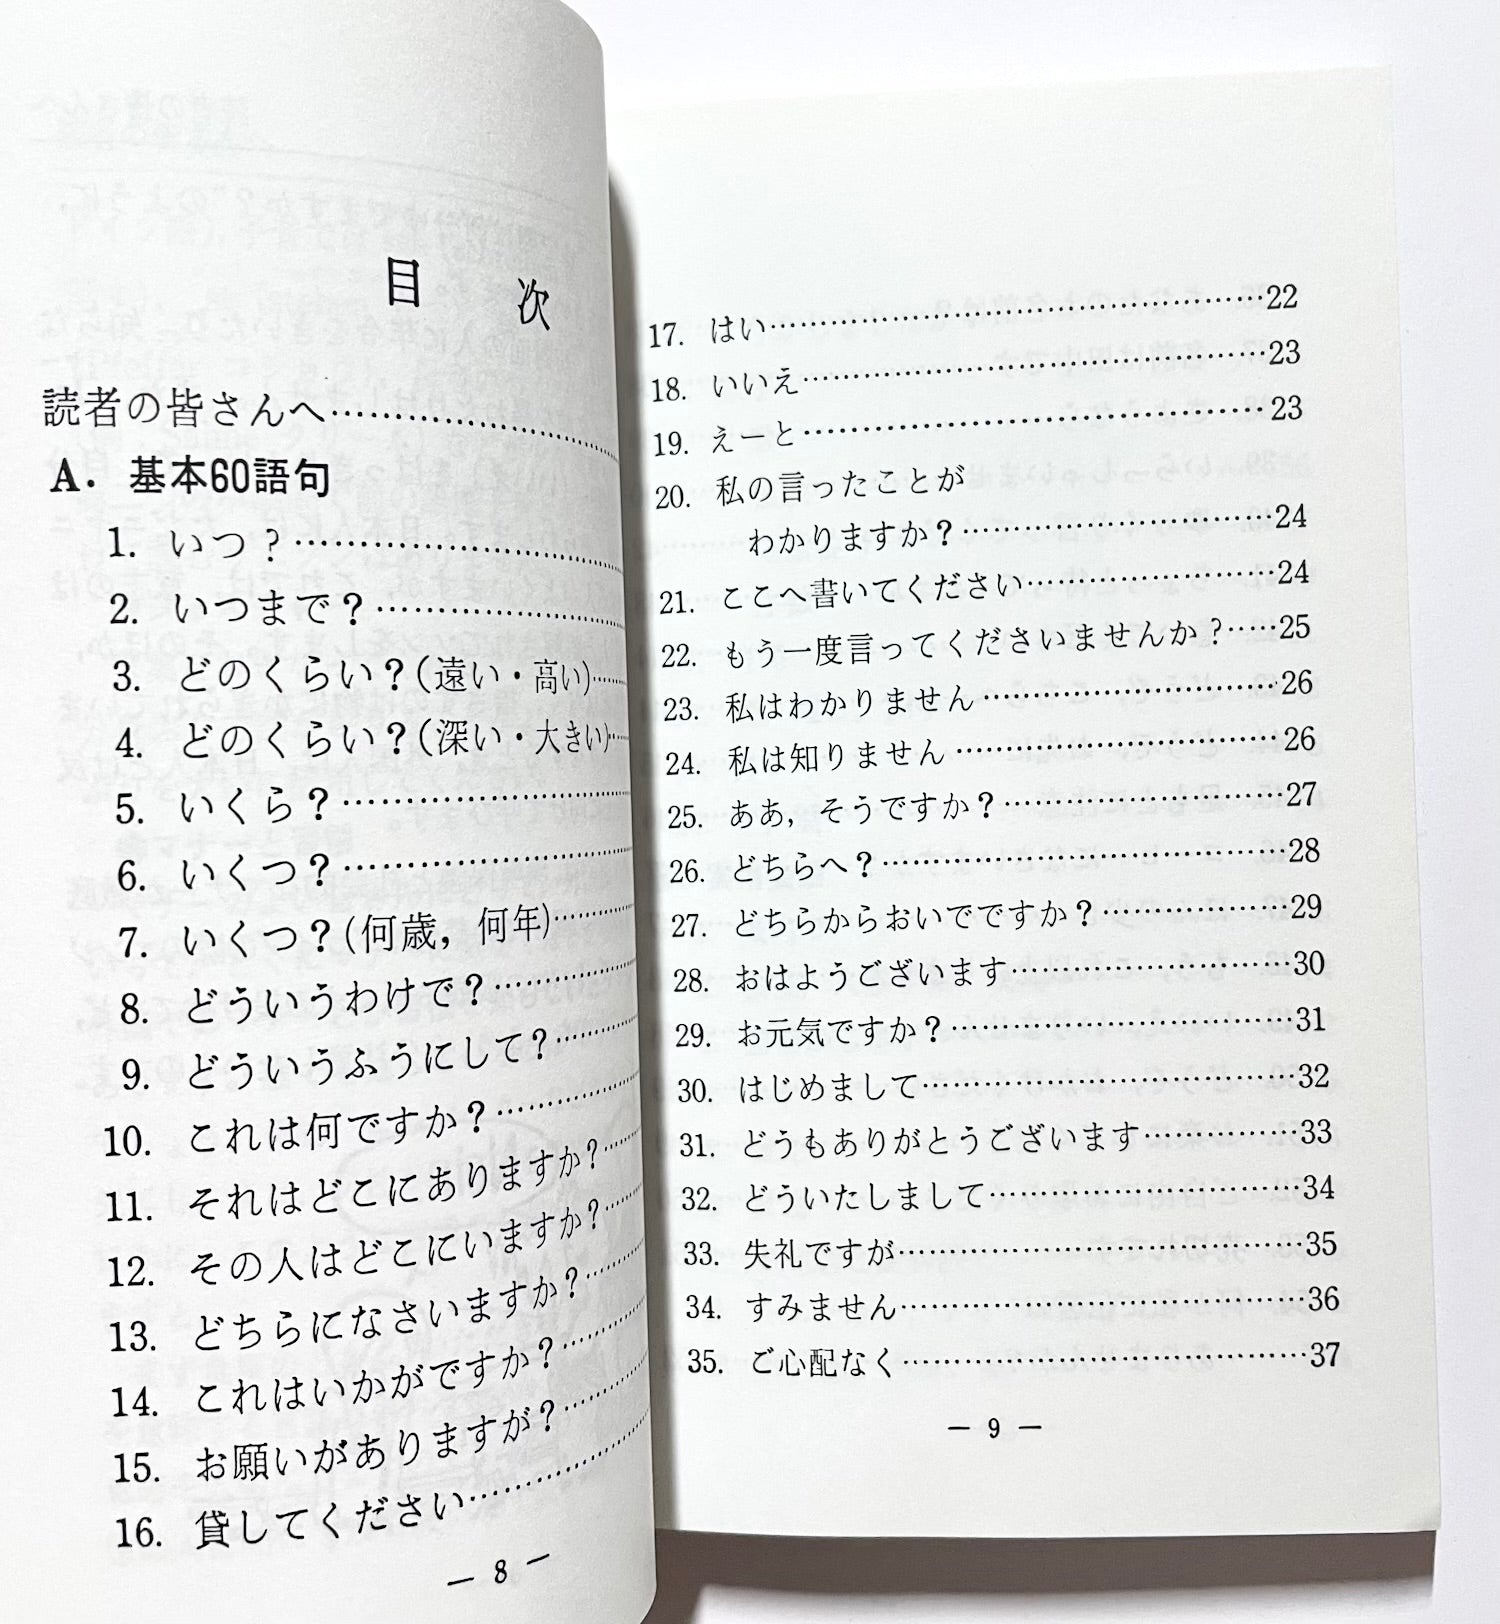 目 次
読者の皆さんへ……………………
A. 基本60語句
1. いつ?……………………
2. いつまで?……………………
3. どのくらい?(遠い・高い)……
4. どのくらい?(深い・大きい)……
5. いくら?……………………
6. いくつ?……………………
7. いくつ?(何歳, 何年)………
8. どういうわけで?…………
9. どういうふうにして?………
10. これは何ですか?…………
11. それはどこにありますか?……
12. その人はどこにいますか?……
13. どちらになさいますか?……
14. これはいかがですか?………
15. お願いがありますが?………
16. 貸してください……………
— 8 —
17. はい……………………………………22
18. いいえ…………………………………23
19. えーと…………………………………23
20. 私の言ったことが
わかりますか?……………………24
21. ここへ書いてください………………24
22. もう一度言ってくださいませんか?……25
23. 私はわかりません……………………26
24. 私は知りません………………………26
25. ああ, そうですか?…………………27
26. どちらへ?……………………………28
27. どちらからおいでですか?…………29
28. おはようございます…………………30
29. お元気ですか?………………………31
30. はじめまして…………………………32
31. どうもありがとうございます…………33
32. どういたしまして……………………34
33. 失礼ですが……………………………35
34. すみません……………………………36
35. ご心配なく……………………………37
— 9 —